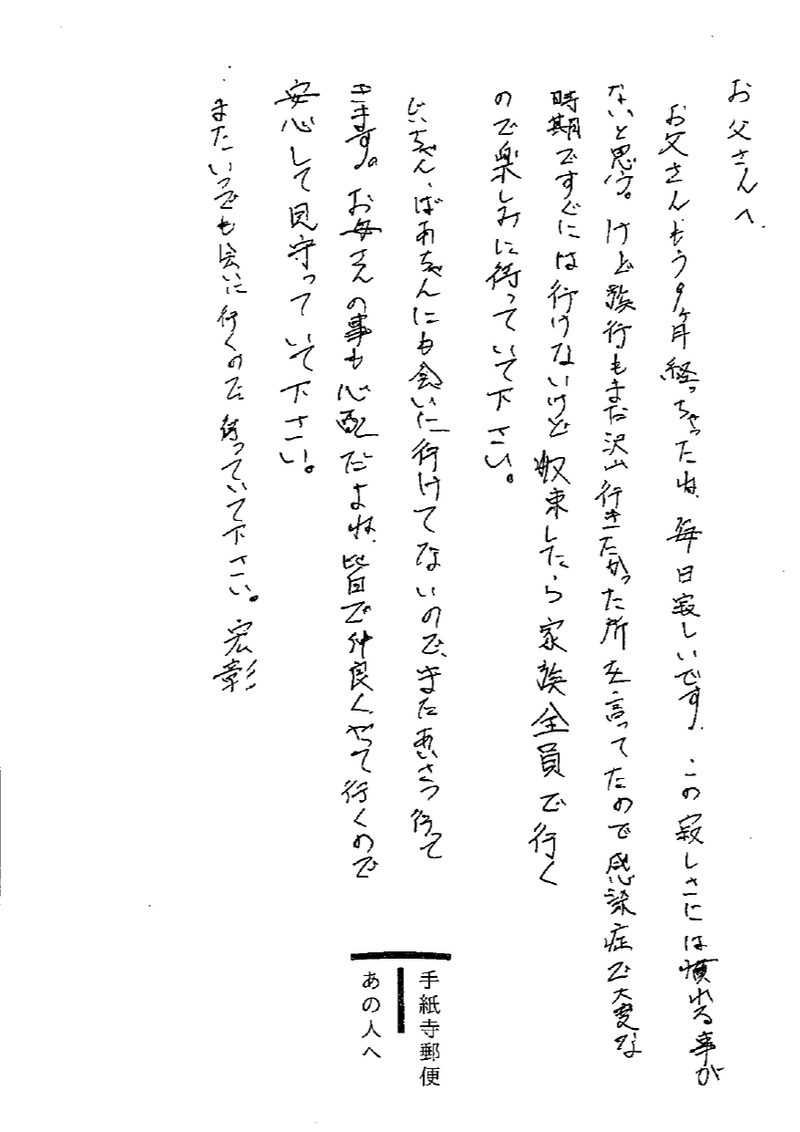 お父さんへ
お父さんもう9ヶ月経っちゃったね、毎日寂しいです。この寂しさには慣れる事が
ないと思う。けど旅行もまだ沢山行きたかった所を言ってたので感染症で大変な
時期ですぐには行けないけど収束したら家族全員で行く
ので楽しみに待っていて下さい。
じいちゃん、ばあちゃんにも会いに行けてないので、またあいさつ行って
きます。お母さんの事も心配だよね、皆で仲良くやって行くので
安心して見守っていて下さい。
またいつでも会いに行くので待っていて下さい。宏彰
手紙寺郵便
あの人へ